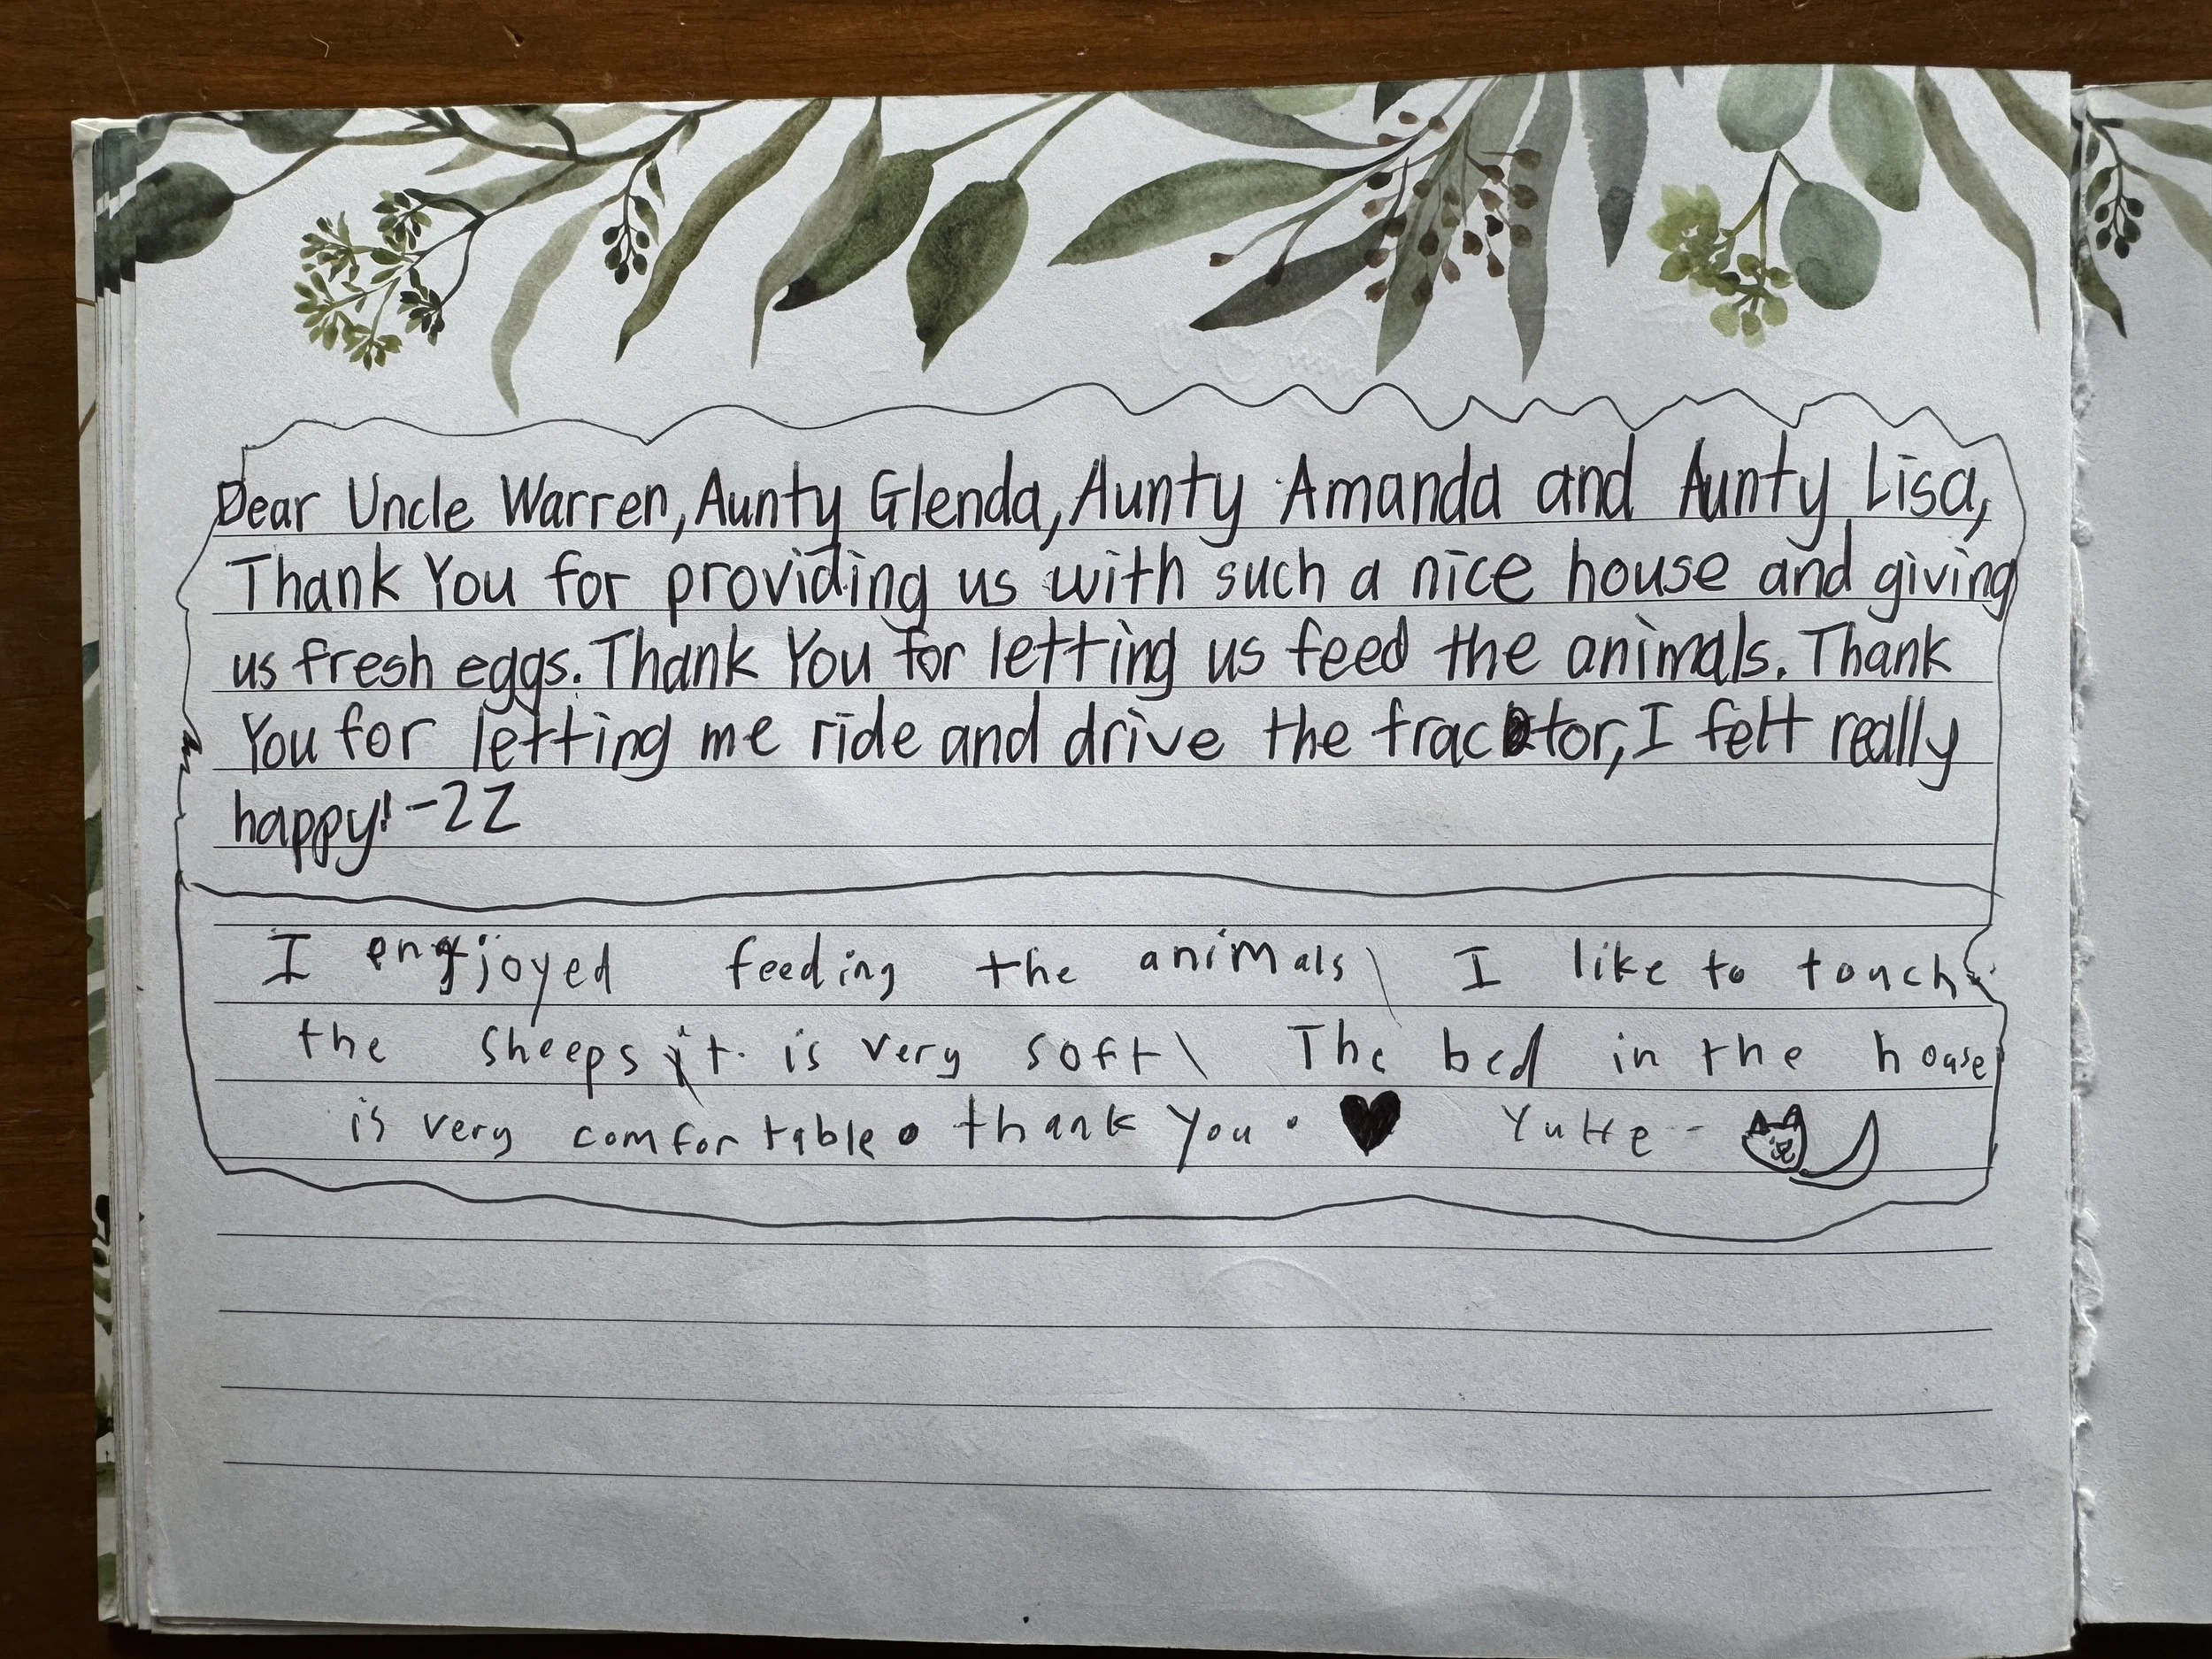 Dear Uncle Warren, Aunty Glenda, Aunty Amanda and Aunty Lisa,
Thank You for providing us with such a nice house and giving
us fresh eggs. Thank You for letting us feed the animals. Thank
You for letting me ride and drive the tractor, I felt really
happy! -ZZ
I enjoyed feeding the animals\ I like to touch
the sheeps it is very soft\ The bed in the house
is very comfortable. thank you. ♥